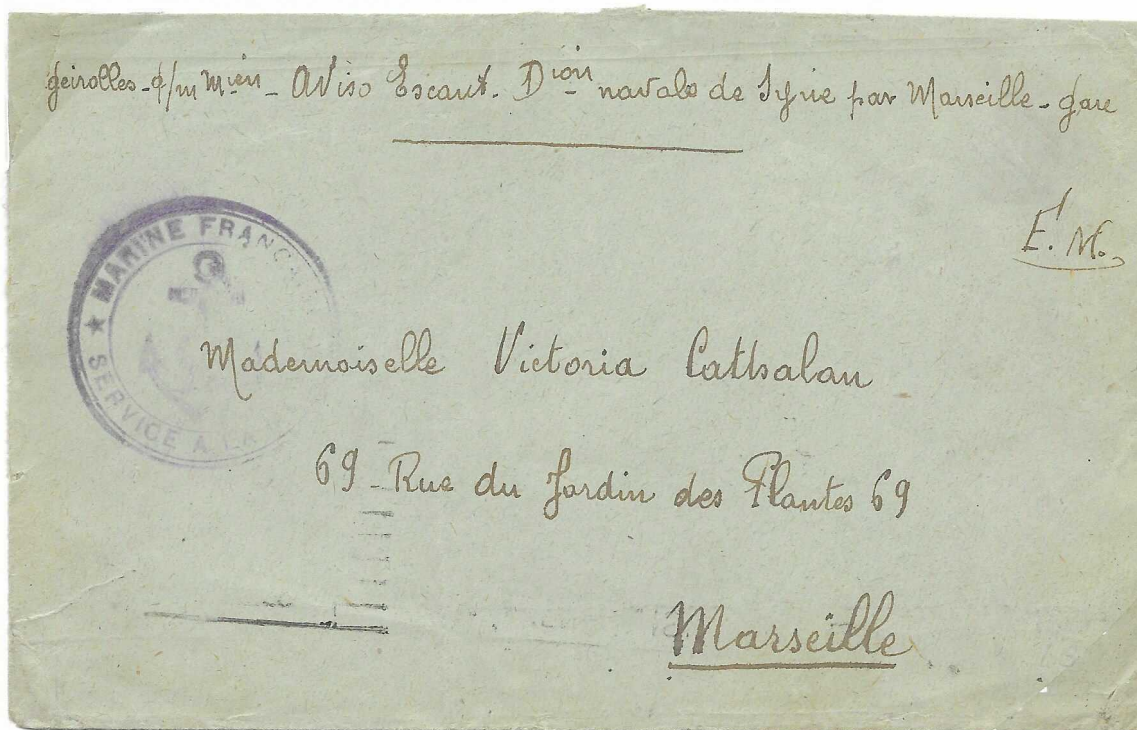 Geirolles - q/m Mien - Aviso Escaut. Dion navale de Syrie par Marseille - gare
F. M.
MARINE FRANÇAISE
SERVICE A LA
Mademoiselle Victoria Cathalan
69 - Rue du Jardin des Plantes 69
Marseille